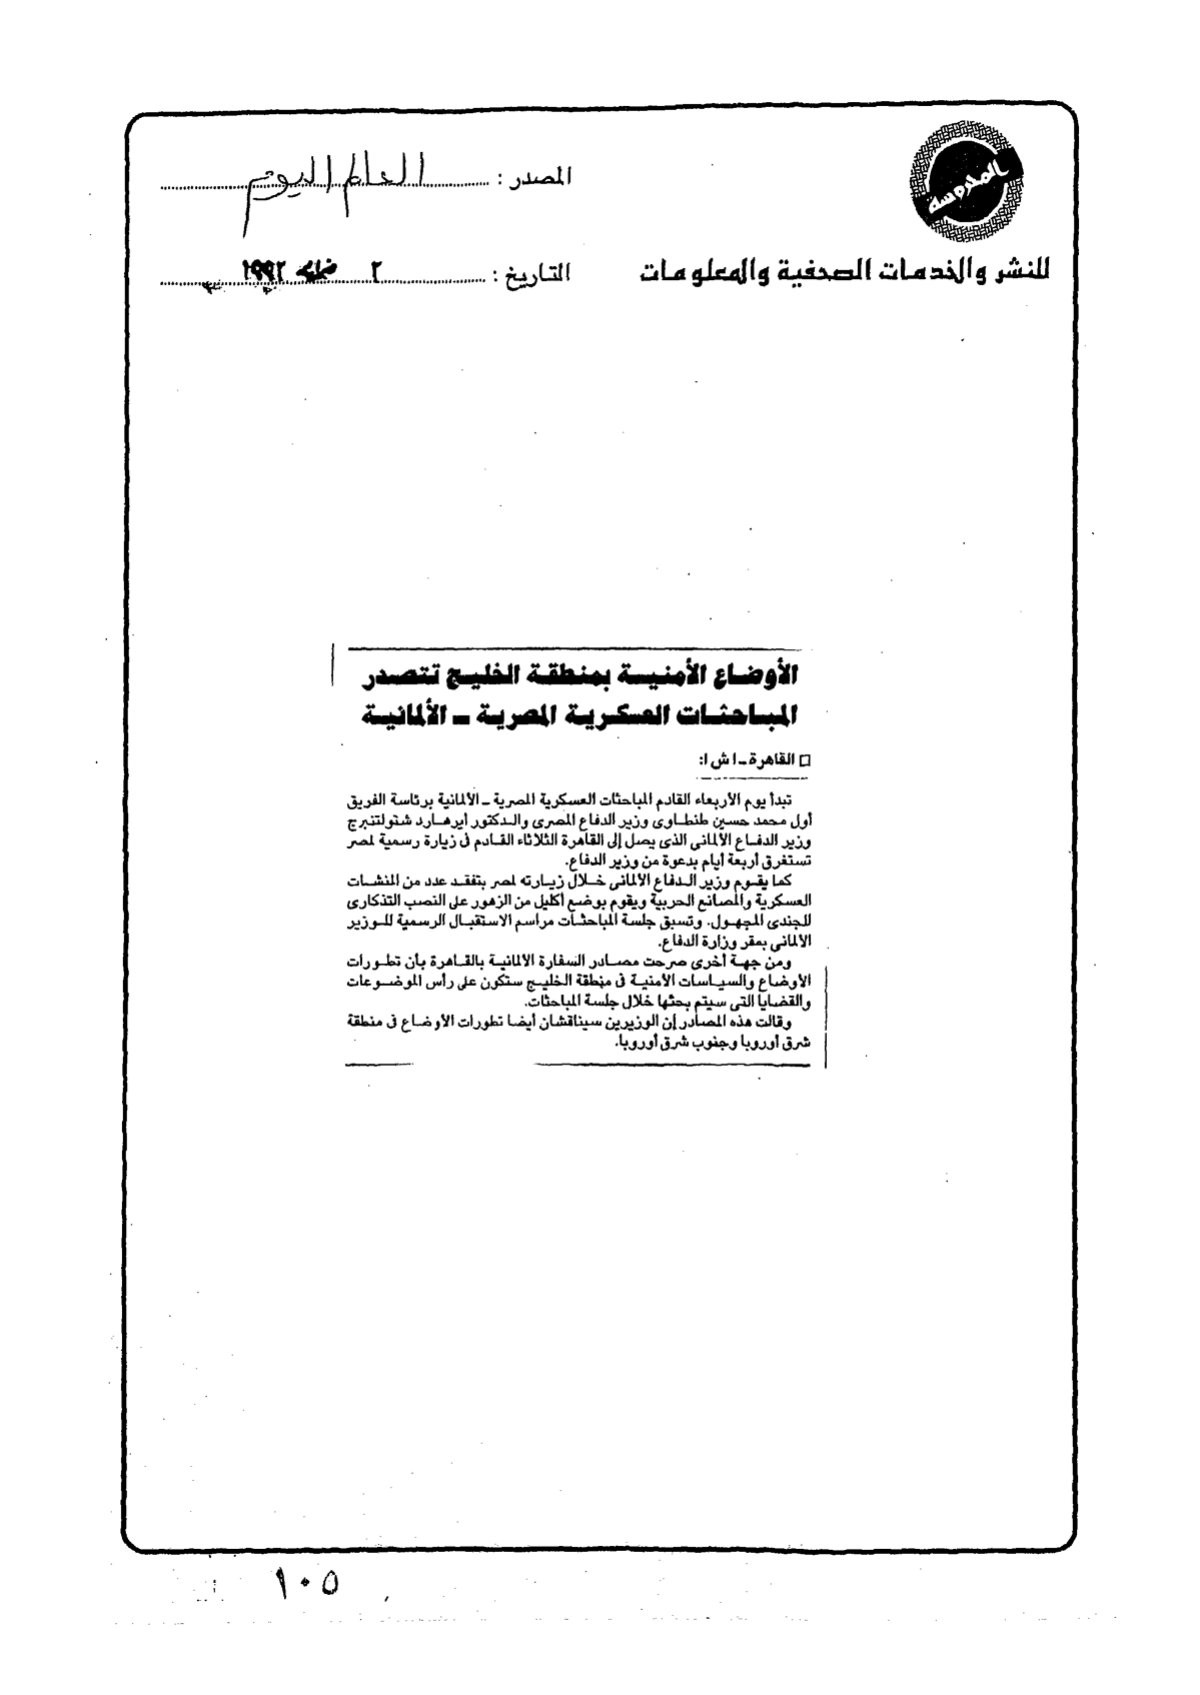 المحروسة
المصدر : العالم اليوم
للنشر والخدمات الصحفية والمعلومات
التاريخ : ٢ فبراير ١٩٩٢
الأوضاع الأمنية بمنطقة الخليج تتصدر
المباحثات العسكرية المصرية ــ الألمانية
القاهرة ــ ا ش ا:
تبدأ يوم الأربعاء القادم المباحثات العسكرية المصرية ــ الألمانية برئاسة الفريق
أول محمد حسين طنطاوى وزير الدفاع المصرى والدكتور ايرهارد شتولتنبرج
وزير الدفاع الألمانى الذى يصل إلى القاهرة الثلاثاء القادم فى زيارة رسمية لمصر
تستغرق أربعة أيام بدعوة من وزير الدفاع.
كما يقوم وزير الدفاع الألمانى خلال زيارته لمصر بتفقد عدد من المنشات
العسكرية والمصانع الحربية ويقوم بوضع أكليل من الزهور على النصب التذكارى
للجندى المجهول. وتسبق جلسة المباحثات مراسم الاستقبال الرسمية للوزير
الالمانى بمقر وزارة الدفاع.
ومن جهة أخرى صرحت مصادر السفارة الالمانية بالقاهرة بأن تطورات
الأوضاع والسياسات الأمنية فى منطقة الخليج ستكون على رأس الموضوعات
والقضايا التى سيتم بحثها خلال جلسة المباحثات.
وقالت هذه المصادر إن الوزيرين سيناقشان أيضا تطورات الأوضاع فى منطقة
شرق أوروبا وجنوب شرق أوروبا.
١٠٥